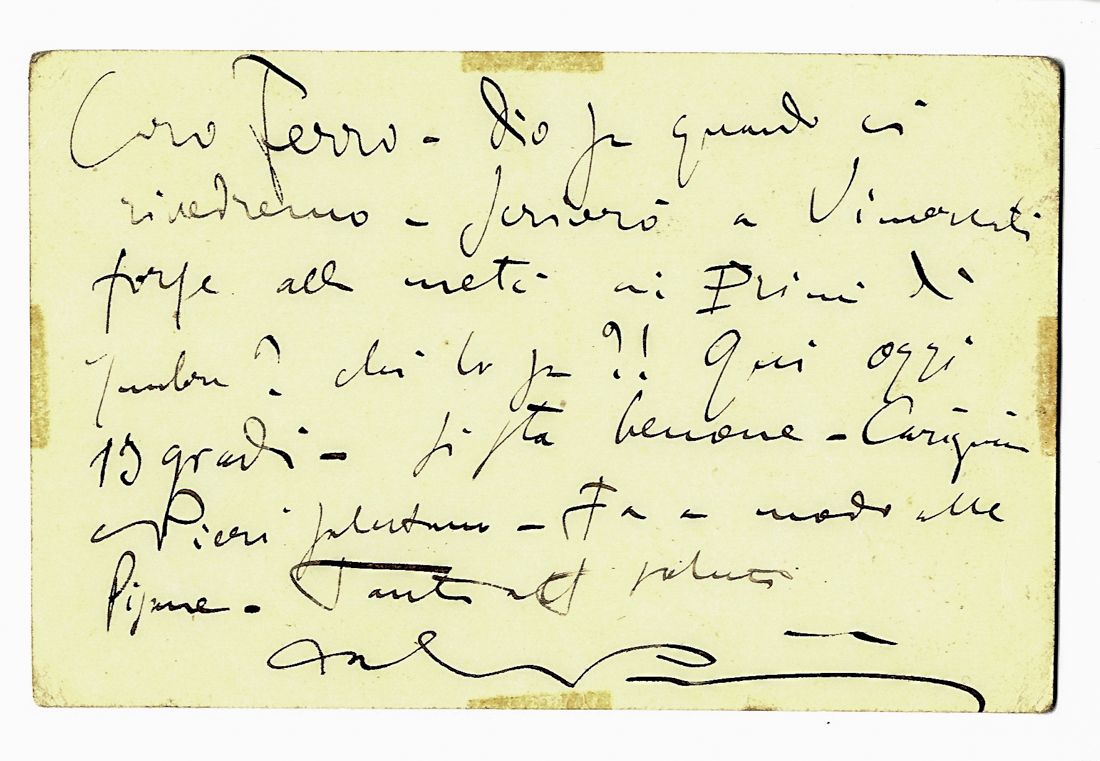 Caro Ferro - Dio sa quando ci
rivedremo - scriverò a Vimercati
forse alla metà ai Primi di
? chi lo sa ?! Qui oggi
13 gradi - si sta benone - Carignani
e Pieri salutano - Fa a modo alle
Pisane - Tanti saluti